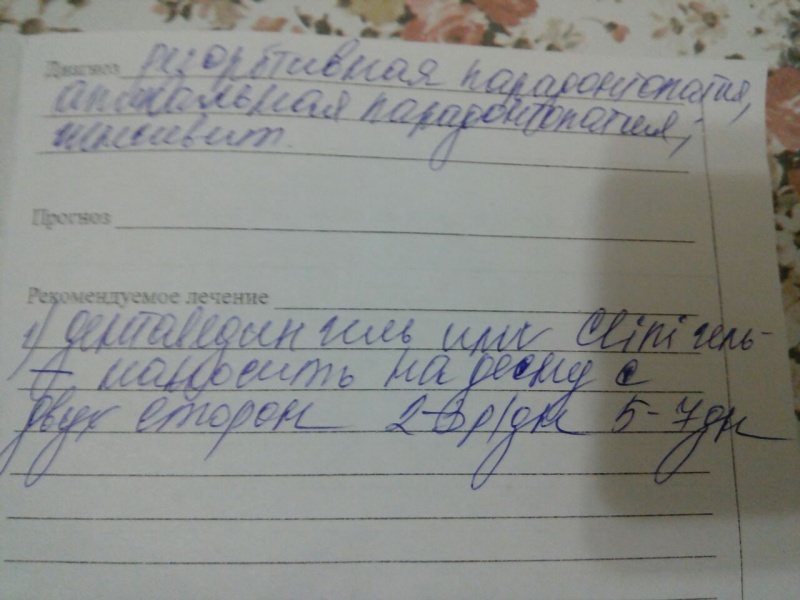 Диагноз резорбтивная парадонтопатия,
апикальная парадонтопатия,
гингивит.
Прогноз
Рекомендуемое лечение
1) дентаведин гель или Clini гель-
- наносить на десну с
двух сторон 2-3 р/дн 5-7 дн